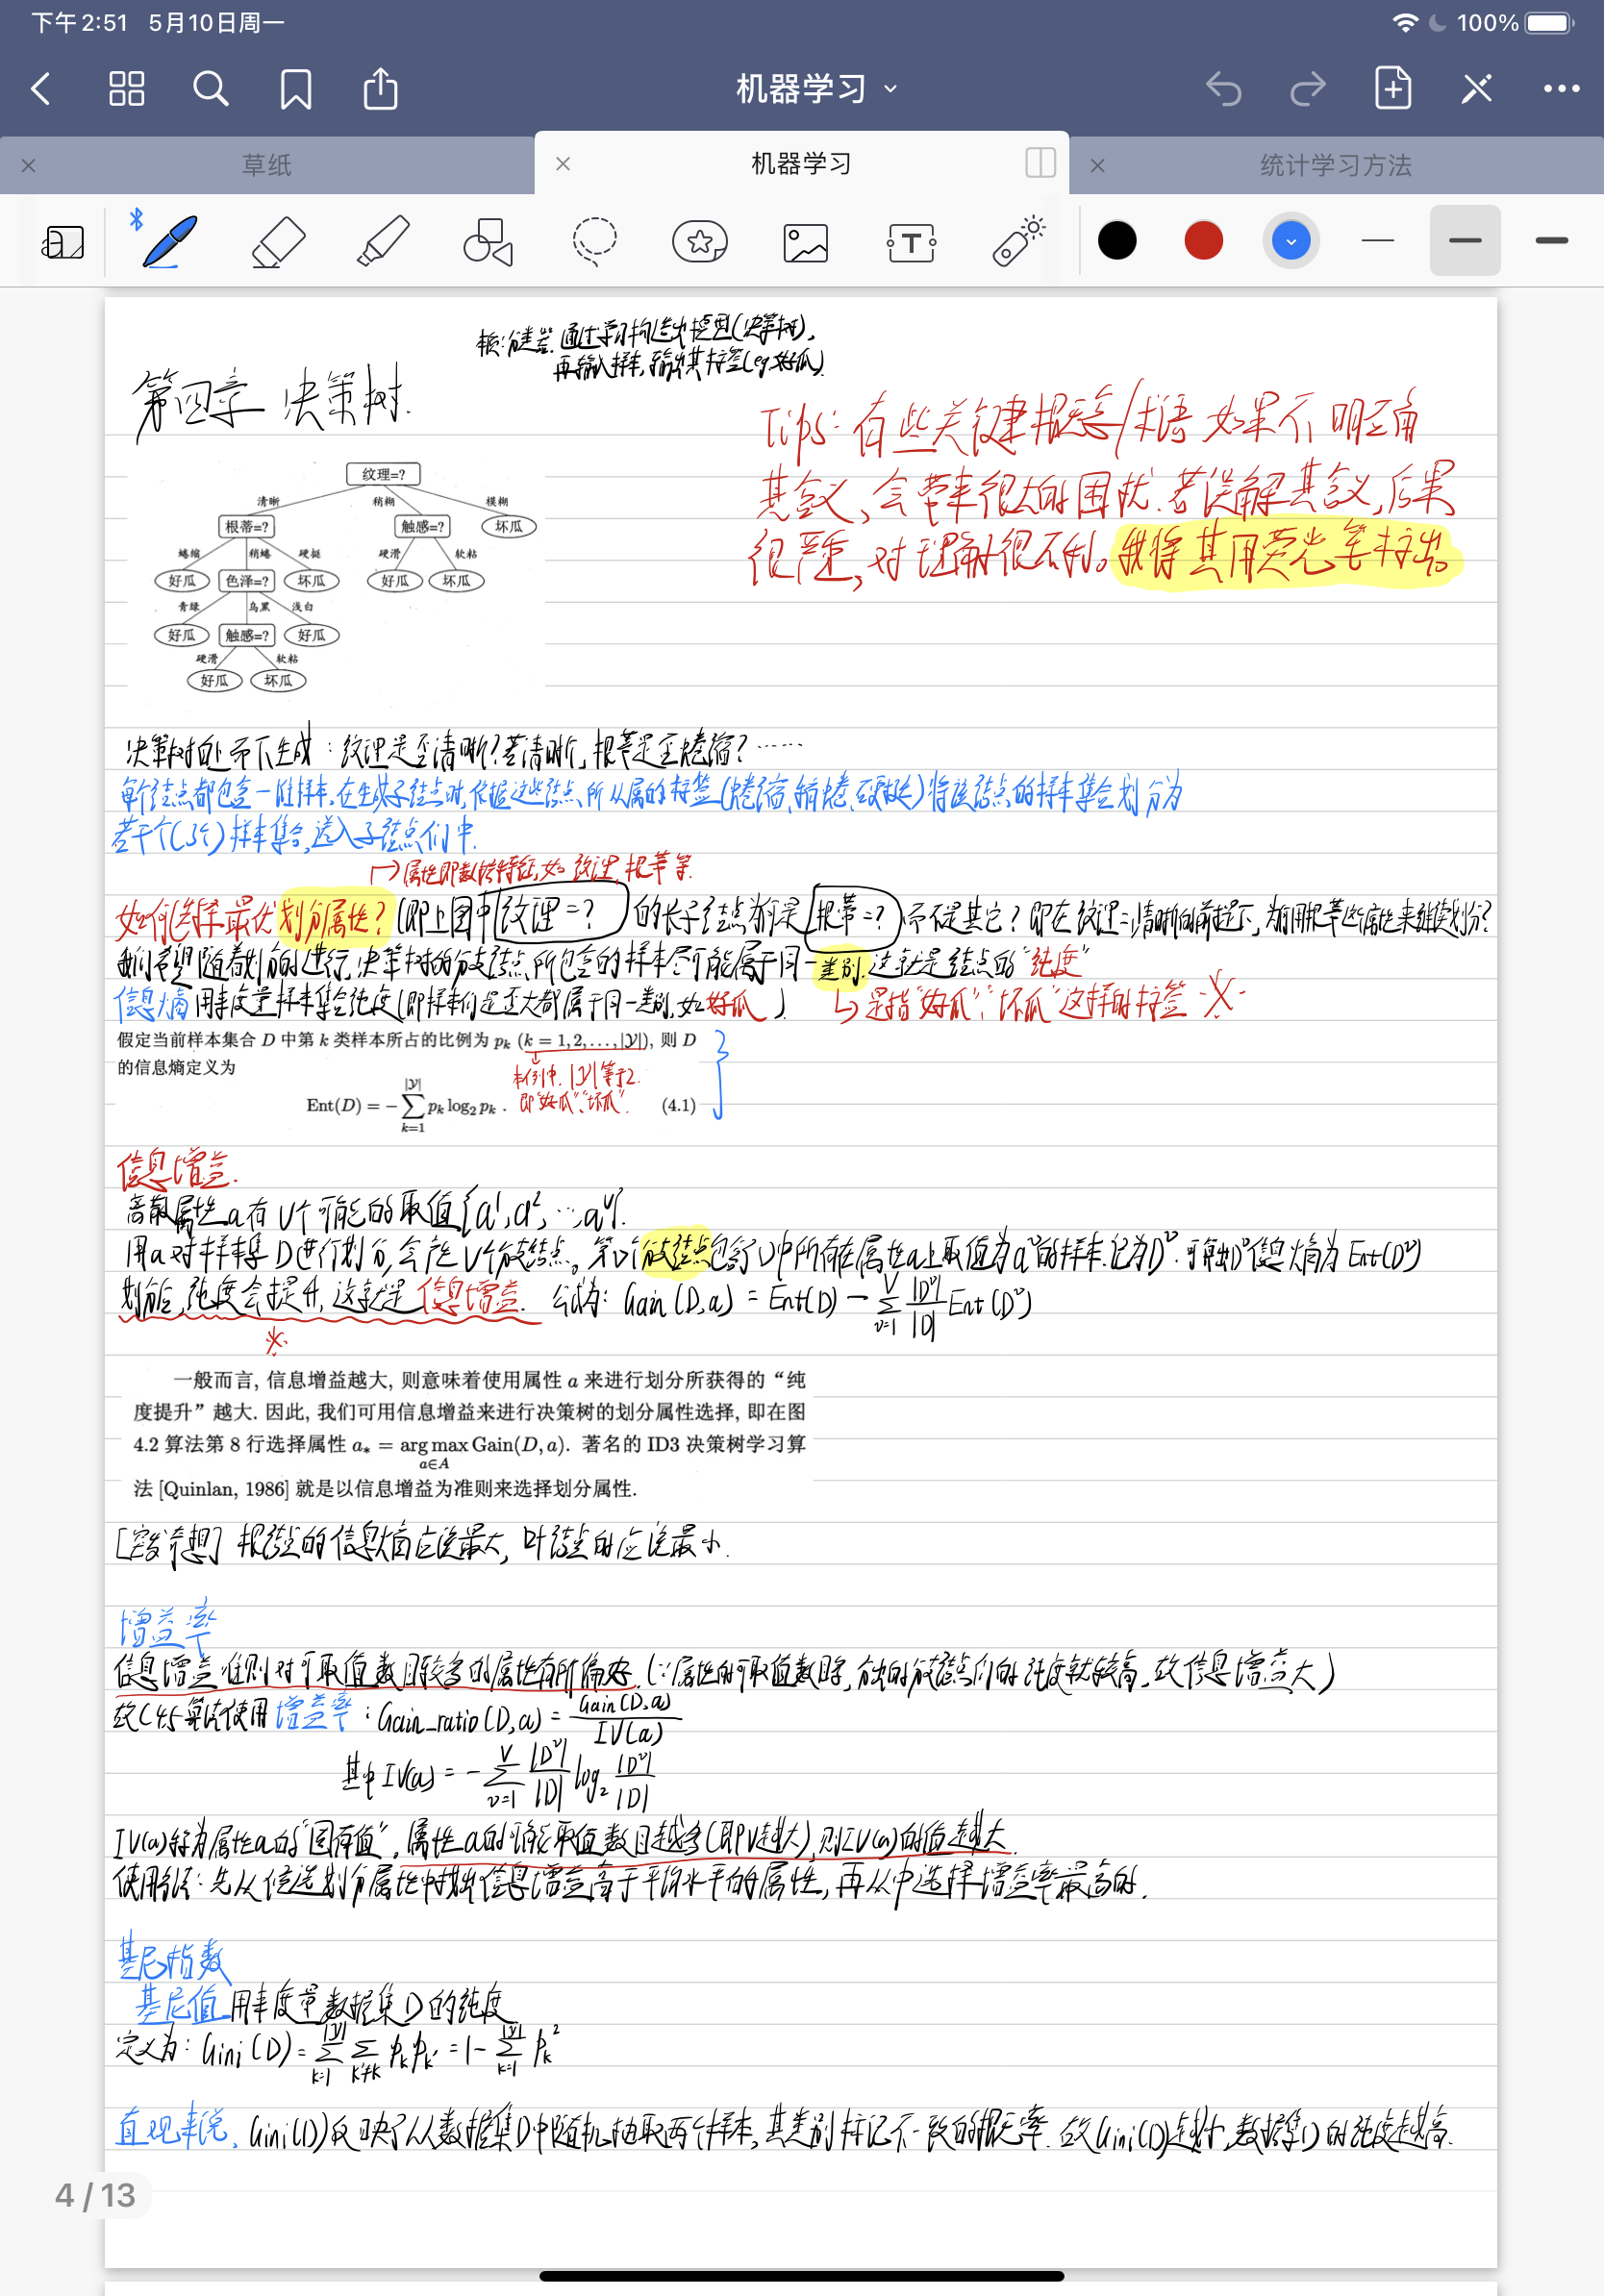 下午2:51 5月10日周一
100%
机器学习
草纸
机器学习
统计学习方法
通过学习构造出模型(决策树),
再输入样本,输出其标签(eg.好瓜)
第四章 决策树.
Tips: 有些关键概念/术语 如果不明确
其含义,会带来很大的困扰.若误解其含义,后果
很严重,对理解很不利。我将其用荧光笔标出。
纹理=?
清晰 稍糊 模糊
根蒂=? 触感=? 坏瓜
蜷缩 稍蜷 硬挺 硬滑 软粘
好瓜 色泽=? 坏瓜 好瓜 坏瓜
青绿 乌黑 浅白
好瓜 触感=? 好瓜
硬滑 软粘
好瓜 坏瓜
决策树自上而下生成:纹理是否清晰?若清晰,根蒂是否蜷缩?……
每个结点都包含一堆样本,在生成子结点时,依据这些结点所从属的标签(蜷缩、稍蜷、硬挺)将该结点的样本集合划分为
若干个(3个)样本集合,送入子结点们中.
属性即数据特征,如 纹理、根蒂等.
如何选择最优划分属性?(即上图中纹理=? 的长子结点为何是 根蒂=? 而不是其它?即在纹理=清晰的前提下,为何用根蒂这些属性来继续划分?
我们希望随着划分的进行,决策树的分支结点所包含的样本尽可能属于同一类别.这就是结点的"纯度"
信息熵用来度量样本集合纯度(即样本们是否大都属于同一类别,如好瓜) 是指"好瓜"、"坏瓜"这样的标签
假定当前样本集合 D 中第 k 类样本所占的比例为 pₖ (k = 1, 2, . . . , |𝒴|), 则 D
的信息熵定义为
本例中, |𝒴|等于2.
即"好瓜"、"坏瓜".
Ent(D) = −∑_{k=1}^{|𝒴|} pₖ log₂ pₖ . (4.1)
信息增益.
离散属性a有V个可能的取值{a¹,a²,…,aⱽ}.
用a对样本集D进行划分,会产生V个分支结点。第v个分支结点包含了D中所有在属性a上取值为aᵛ的样本.记为Dᵛ.可算出Dᵛ信息熵为Ent(Dᵛ)
划分后,纯度会提升,这就是信息增益. 公式为: Gain(D,a) = Ent(D) − ∑_{v=1}^{V} |Dᵛ|/|D| Ent(Dᵛ)
一般而言, 信息增益越大, 则意味着使用属性 a 来进行划分所获得的“纯
度提升”越大. 因此, 我们可用信息增益来进行决策树的划分属性选择, 即在图
4.2 算法第 8 行选择属性 a∗ = arg max_{a∈A} Gain(D, a). 著名的 ID3 决策树学习算
法 [Quinlan, 1986] 就是以信息增益为准则来选择划分属性.
[突发奇想] 根结点的信息熵应该最大, 叶结点的应该最小.
增益率
信息增益准则对可取值数目较多的属性有所偏好.(∵属性的可取值数目多,分出的分支结点们的纯度就较高,故信息增益大)
故C4.5算法使用增益率:Gain_ratio(D,a) = Gain(D,a)/IV(a)
其中 IV(a) = −∑_{v=1}^{V} |Dᵛ|/|D| log₂ |Dᵛ|/|D|
IV(a)称为属性a的"固有值". 属性a的可能取值数目越多(即V越大),则IV(a)的值越大.
使用方法:先从候选划分属性中找出信息增益高于平均水平的属性,再从中选择增益率最高的.
基尼指数
基尼值用来度量数据集D的纯度
定义为: Gini(D) = ∑_{k=1}^{|𝒴|} ∑_{k'≠k} pₖpₖ' = 1 − ∑_{k=1}^{|𝒴|} pₖ²
直观来说, Gini(D)反映了从数据集D中随机抽取两个样本,其类别标记不一致的概率.故Gini(D)越小,数据集D的纯度越高.
4 / 13